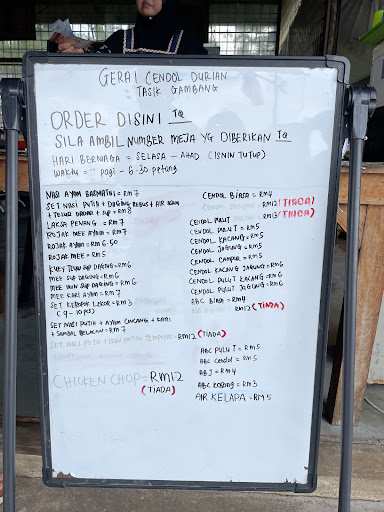 GERAI CENDOL DURIAN
TASIK GAMBANG
ORDER DISINI TQ
SILA AMBIL NUMBER MEJA YG DIBERIKAN TQ
HARI BERNIAGA = SELASA - AHAD (ISNIN TUTUP)
WAKTU - pagi - 6.30 petang
NASI AYAM BASMATHI = RM 7
SET NASI PUTIH + DAGING REBUS + AIR ASAM
+ TELUR DADAR + SUP = RM 8
LAKSA PENANG = RM 7
ROJAK MEE AYAM = RM 7
ROJAK AYAM = RM 6.50
ROJAK MEE = RM 5
KUEY TEOW SUP DAGING = RM 6
MEE SUP DAGING = RM 6
MEE HUN SUP DAGING = RM 6
MEE KARI AYAM = RM 7
SET KEROPOK LEKOR = RM 3
(9 - 10 pcs)
SET NASI PUTIH + AYAM CINCANG + KARI
+ SAMBAL BELACAN = RM 7
SET NASI PUTIH + IKAN PATIN TEMPOYAK = RM 12 (TIADA)
CHICKEN CHOP = RM 12
(TIADA)
CENDOL BIASA = RM 4
CENDOL DURIAN = RM 12 (TIADA)
CENDOL PULUT DURIAN = RM 13 (TIADA)
CENDOL PULUT = RM 5
CENDOL KACANG = RM 5
CENDOL JAGUNG = RM 5
CENDOL CAMPUR = RM 5
CENDOL KACANG JAGUNG = RM 6
CENDOL PULUT KACANG = RM 6
CENDOL PULUT JAGUNG = RM 6
ABC BIASA = RM 4
RM 12 (TIADA)
ABC PULUT = RM 5
ABC CENDOL = RM 5
ABJ = RM 4
ABC KOSONG = RM 3
AIR KELAPA = RM 5